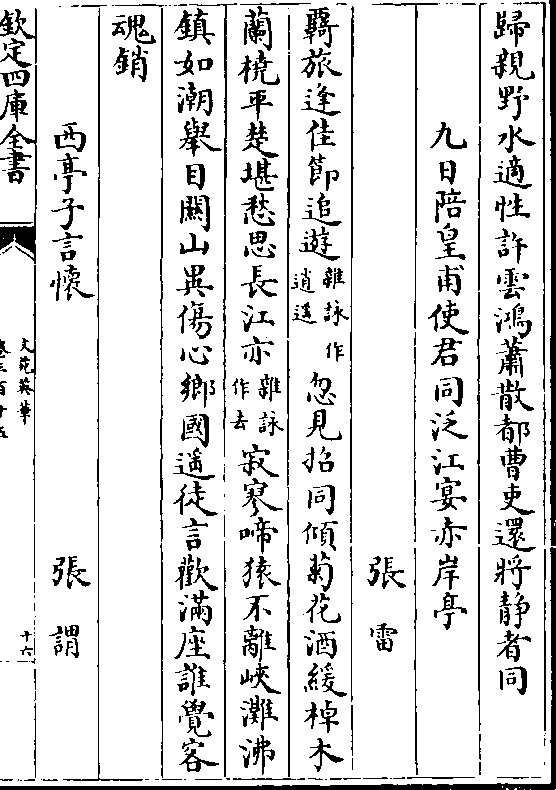 歸親野水適性許雲鴻蕭散都曹吏還將靜者同
九日陪皇甫使君同泛江宴赤岸亭
張雷
羇旅逢佳節追遊雜詠作逍遥忽見招同傾菊花酒緩棹木
蘭橈平楚堪愁思長江亦雜詠作去寂寥啼猿不離峽灘沸
鎮如潮舉目關山異傷心鄉國遥徒言歡滿座誰覺客
魂銷
西亭子言懷
張謂
欽定四庫全書
文苑英華
卷三百十五
十六